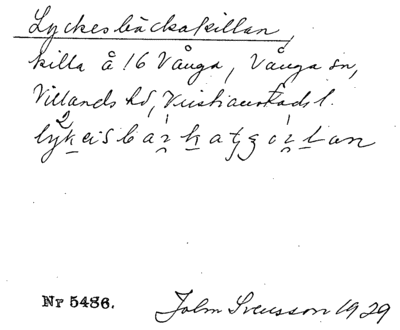 Lyckesbäckakillan
killa å 16 Vånga, Vånga sn,
Villands hd, Kristianstads l.
Nr 5486. John Svensson 1929